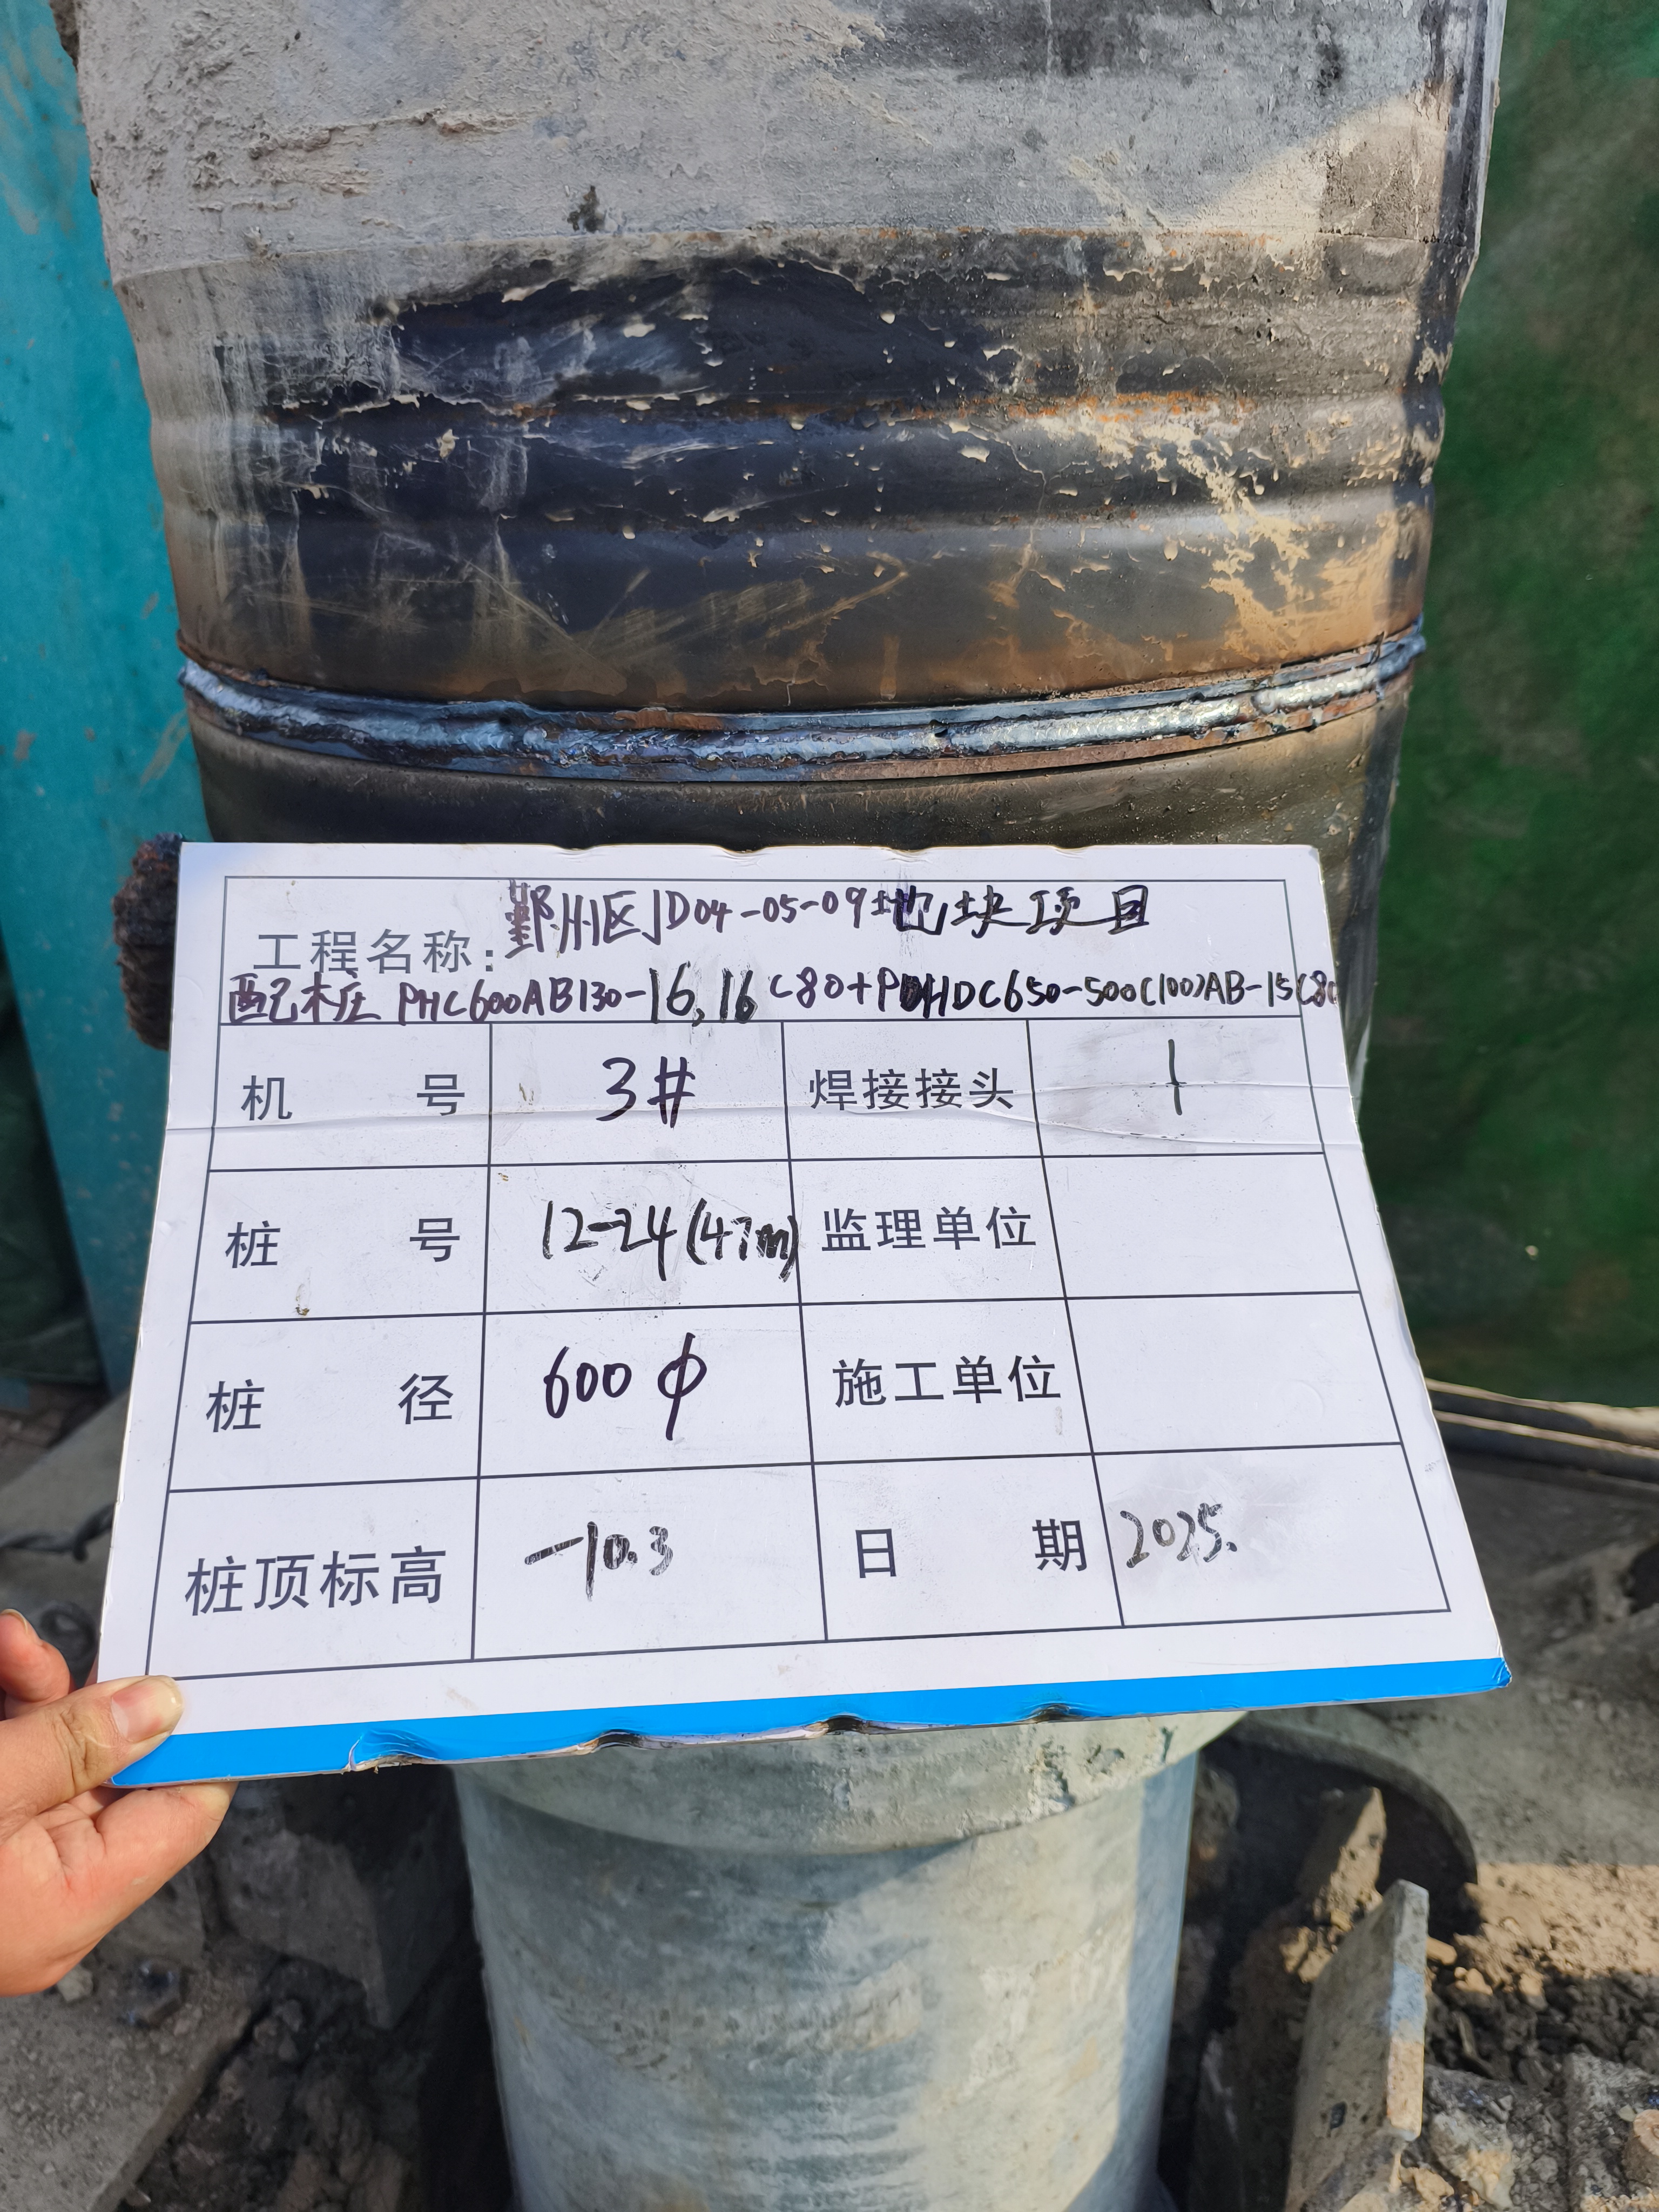 工程名称: 鄞州区JD04-05-09地块项目
配桩 PHC600AB130-16,16 C80+PHDC650-500(100)AB-15C80
机 号 3# 焊接接头 1
桩 号 12-24(47m) 监理单位
桩 径 600 φ 施工单位
桩顶标高 -10.3 日 期 2025.